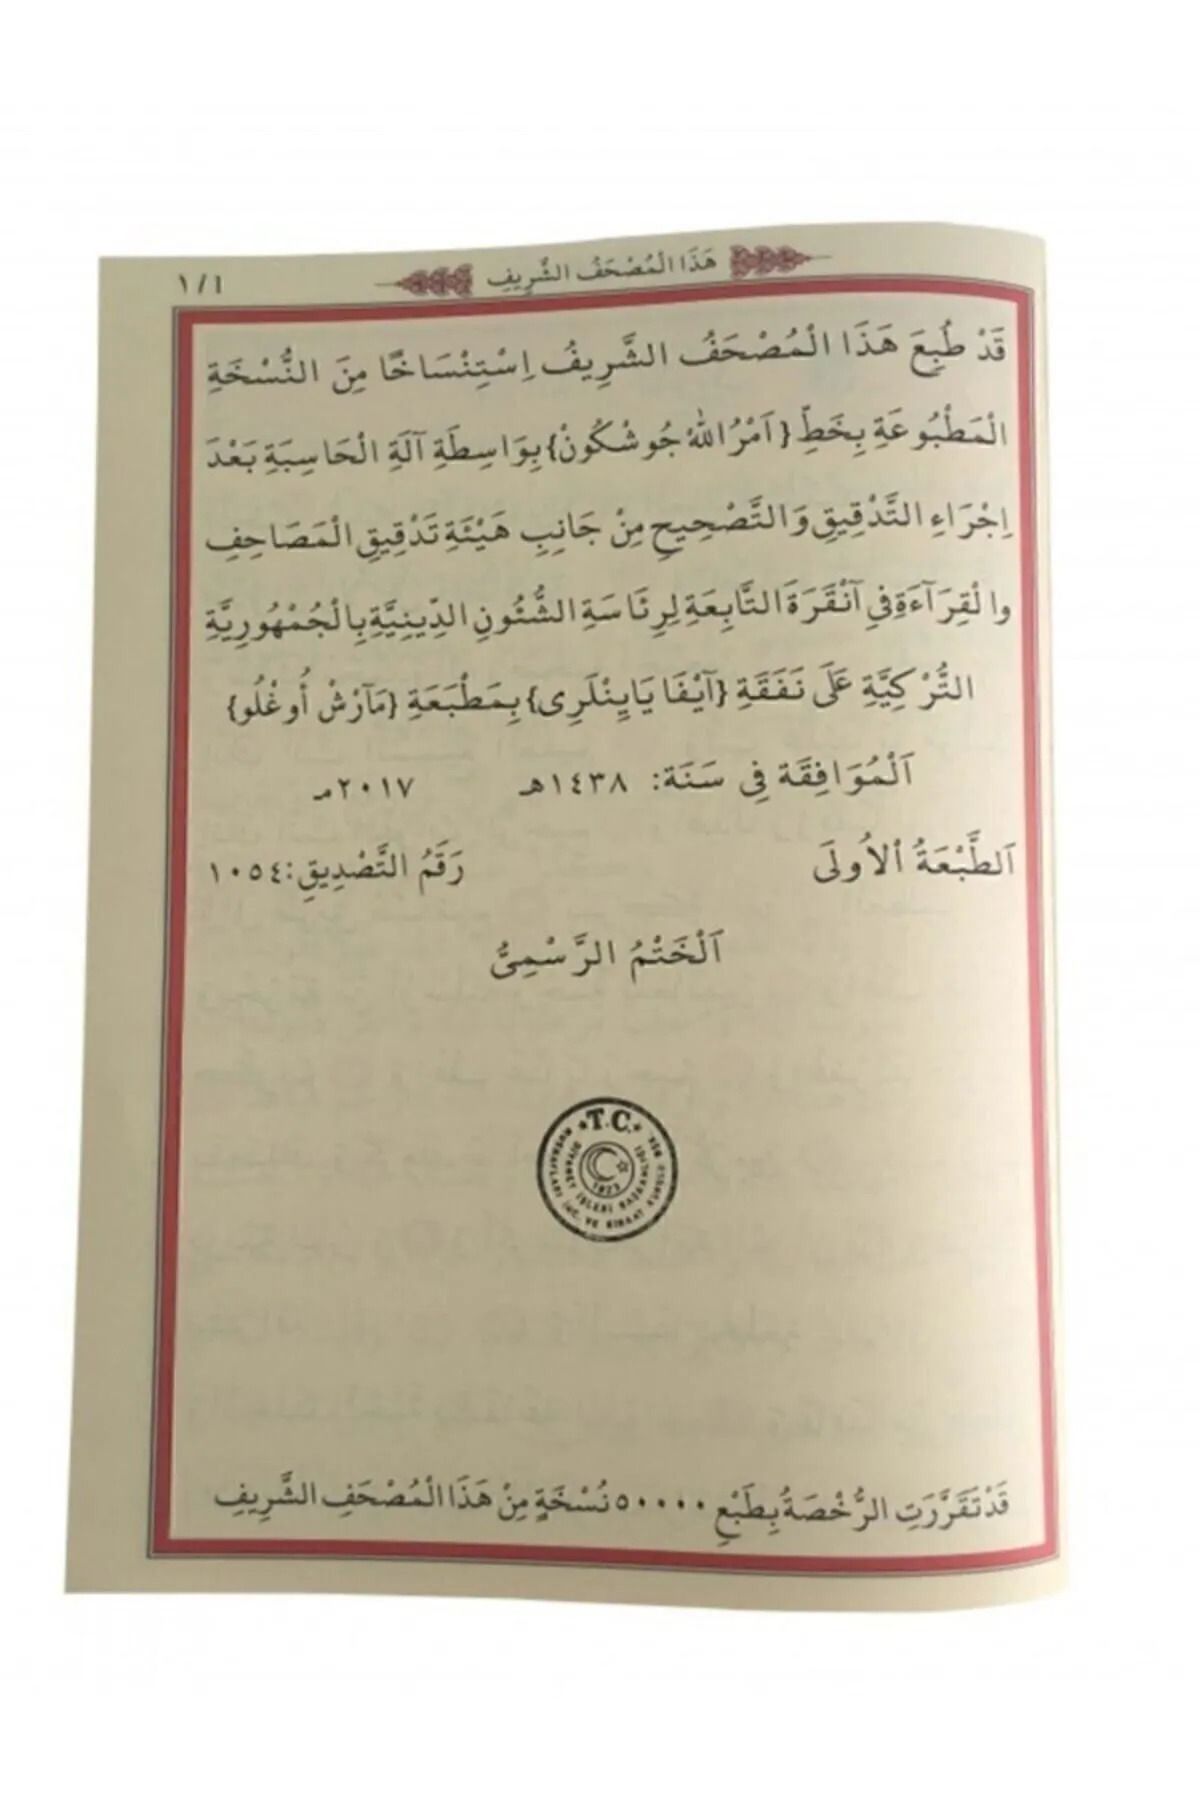 هَذَا الْمُصْحَفُ الشَّرِيفِ
١/١
قَدْ طُبِعَ هَذَا الْمُصْحَفُ الشَّرِيفُ اِسْتِنْسَاخًا مِنَ النُّسْخَةِ
الْمَطْبُوعَةِ بِخَطِّ {اَمْرُ اللهْ جُوشْكُونْ} بِوَاسِطَةِ آلَةِ الْحَاسِبَةِ بَعْدَ
اِجْرَاءِ التَّدْقِيقِ وَالتَّصْحِيحِ مِنْ جَانِبِ هَيْئَةِ تَدْقِيقِ الْمَصَاحِفِ
والْقِرَآءَةِ فِي آنْقَرَةَ التَّابِعَةِ لِرِئَاسَةِ الشُّئُونِ الدِّينِيَّةِ بِالْجُمْهُورِيَّةِ
التُّرْكِيَّةِ عَلَى نَفَقَةِ {آيْفَا يَايِنْلَرِى} بِمَطْبَعَةِ {مَآرْشْ أُوغْلُو}
اَلْمُوَافِقَة فِي سَنَة: ١٤٣٨هـ ٢٠١٧مـ
اَلطَّبْعَةُ اْلاُولَى رَقَمُ التَّصْدِيقِ: ١٠٥٤
اَلْخَتْمُ الرَّسْمِىُّ
T.C.
DİYANET İŞLERİ BAŞKANLIĞI
MUSHAFLARI İNC. VE KIRAAT KURULU BŞK.
قَدْ تَقَرَّرَتِ الرُّخْصَةُ بِطَبْعِ ٥٠٠٠٠ نُسْخَةٍ مِنْ هَذَا الْمُصْحَفِ الشَّرِيفِ